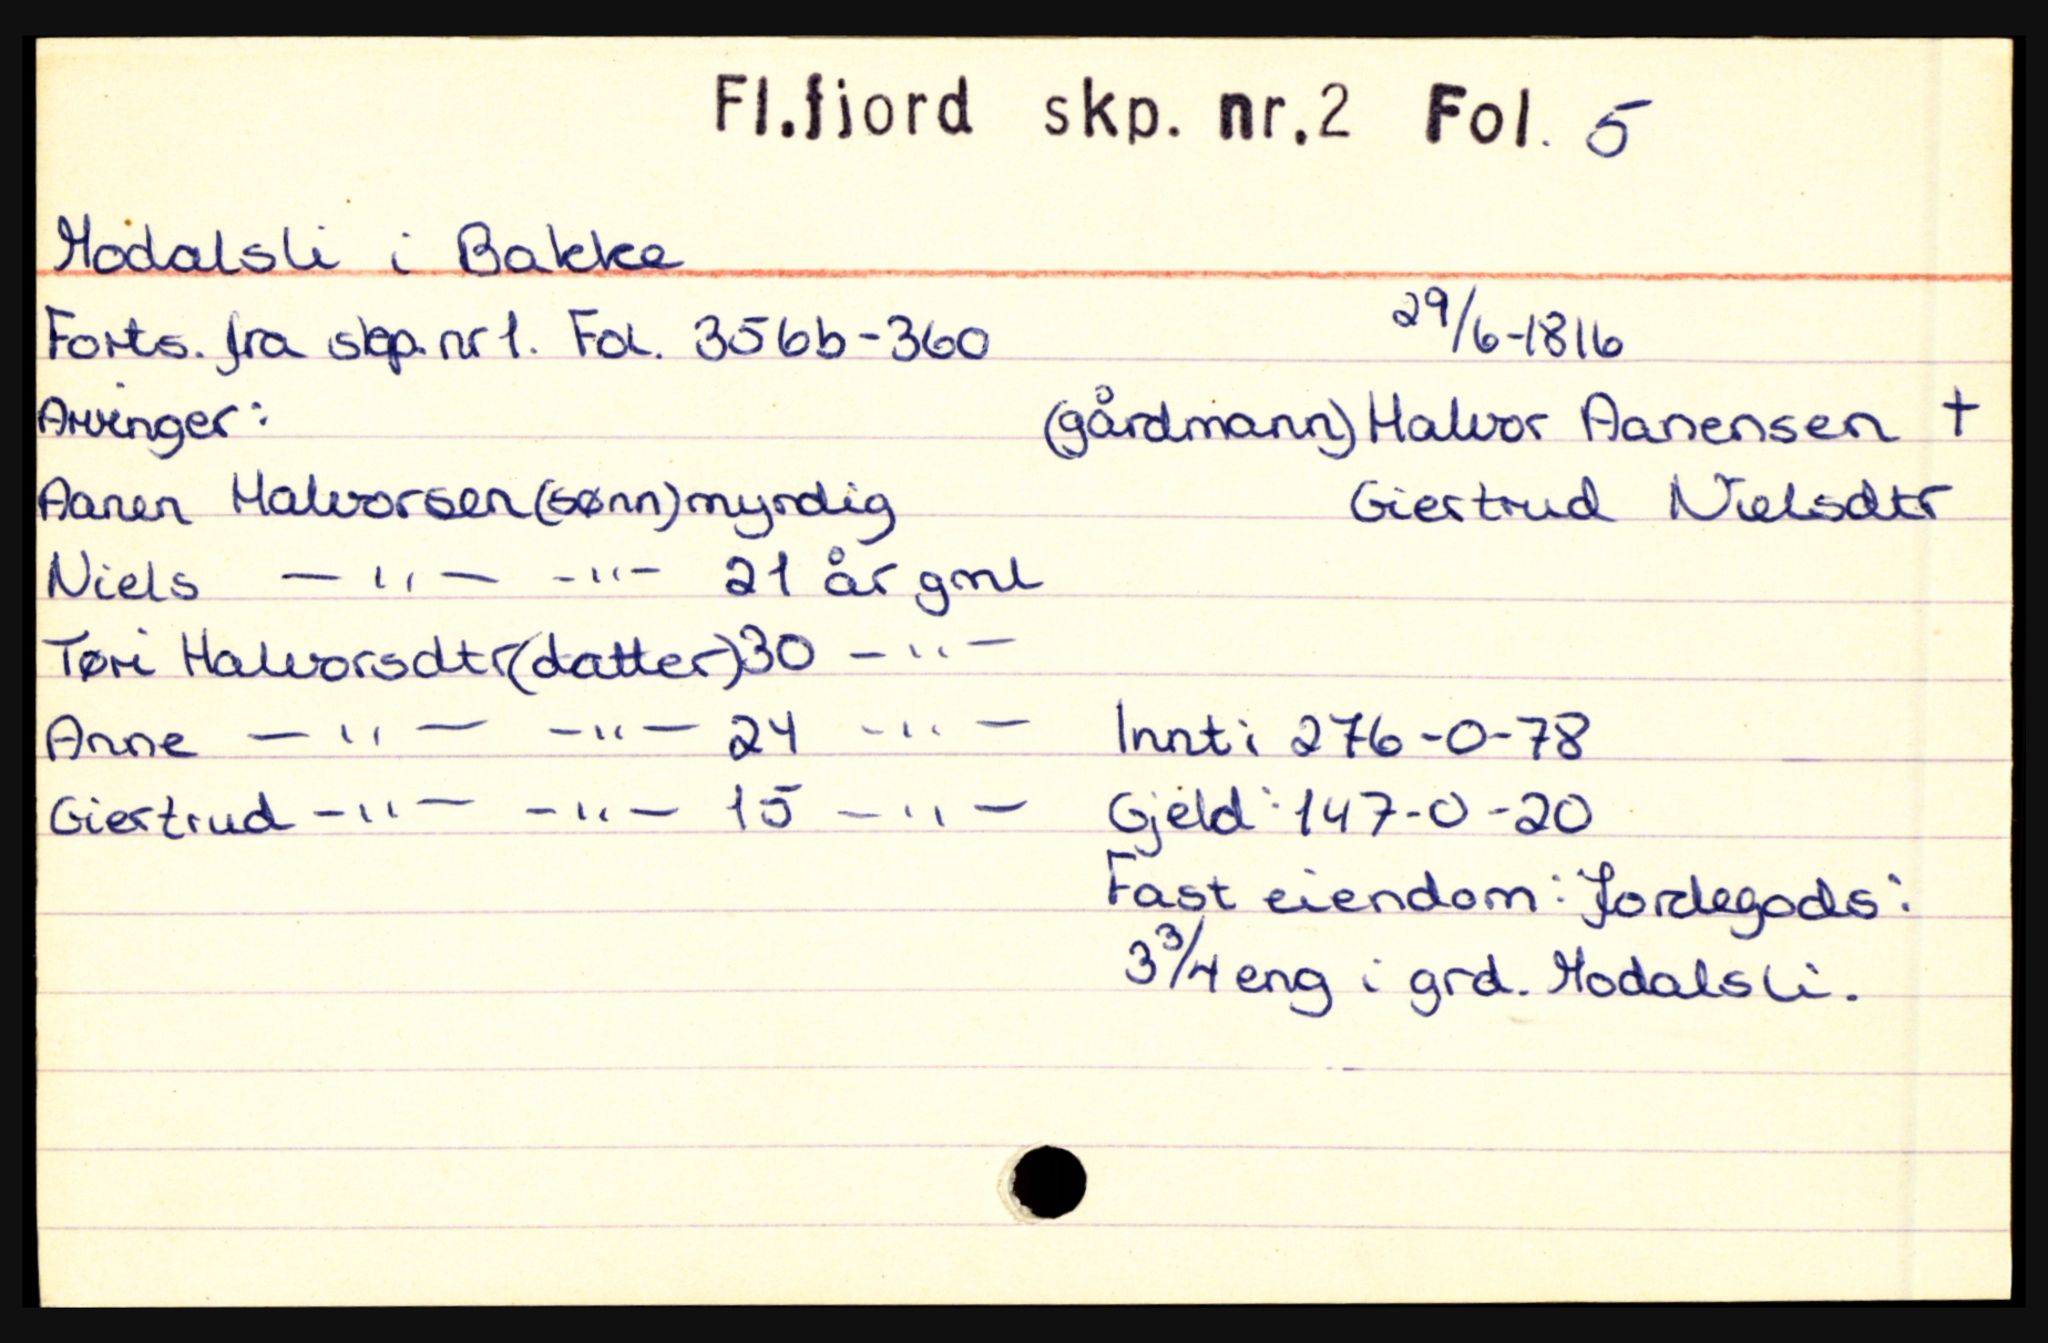 Fl.fjord skp. nr.2 Fol. 5
Modalsli i Bakke
Forts. fra skp. nr 1. Fol. 356b-360 29/6-1816
Arvinger: (gårdmann) Halvor Aanensen +
Aanen Halvorsen (sønn) myndig Giertrud Nielsdtr
Niels — " — - " - 21 år gml
Tøri Halvorsdtr (datter) 30 - " -
Anne — " — - " - 24 - " - Innt: 276-0-78
Giertrud - " - - " - 15 - " - Gjeld: 147-0-20
Fast eiendom: Jordegods:
3 3/4 eng i grd. Modalsli.